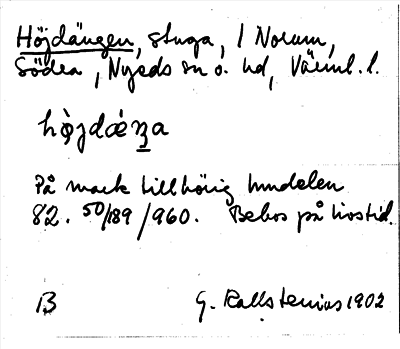 Höjdängen, stuga, / Norum,
Södra, Nyeds sn o. hd, Värml. l.
hø̀jdæ̀ŋa
På mark tillhörig lundelen
82. 50/189 /960. Bebos på livstid.
B G. Kallstenius 1902